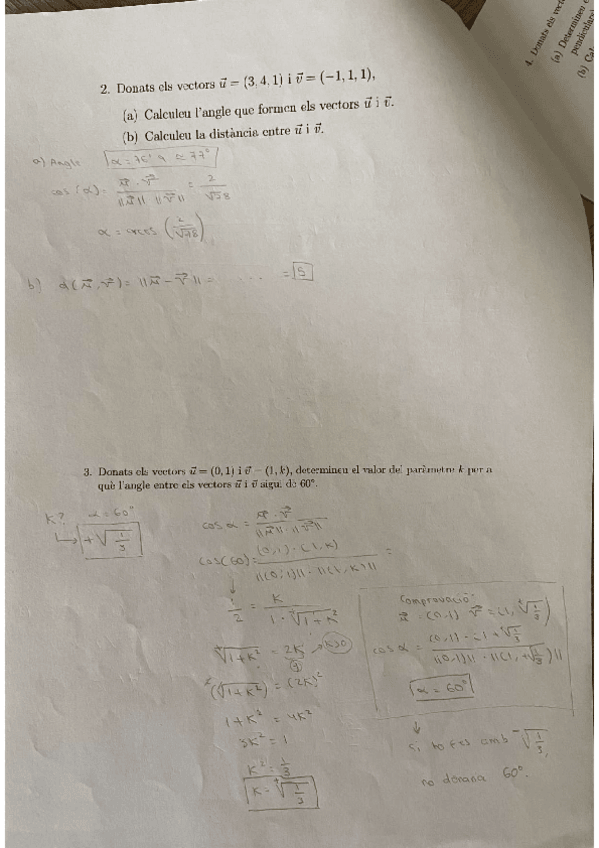 4. Donats els vect
(a) Determinen
pendiculars
(b) Ca
2. Donats els vectors u⃗ = (3, 4, 1) i v⃗ = (−1, 1, 1),
(a) Calculeu l'angle que formen els vectors u⃗ i v⃗.
(b) Calculeu la distància entre u⃗ i v⃗.
a) Angle α = 76'9 ≃ 77°
cos(α) = u⃗ · v⃗ / ||u⃗|| · ||v⃗|| = 2 / √78
α = arccos (2/√78)
b) d(u⃗, v⃗) = ||u⃗ − v⃗|| = ...... = 5
3. Donats els vectors u⃗ = (0, 1) i v⃗ = (1, k), determineu el valor del paràmetre k per a
què l'angle entre els vectors u⃗ i v⃗ sigui de 60°.
K? α = 60°
↳ +√(1/3)
cos α = u⃗ · v⃗ / ||u⃗|| · ||v⃗||
cos(60) = (0,1) · (1,K) / ||(0,1)|| · ||(1,K)|| =
1/2 = K / 1 · √(1+K²)
√(1+K²) = 2K → K>0
(√(1+K²))² = (2K)²
1+K² = 4K²
3K² = 1
K² = 1/3
K = +√(1/3)
Comprovació:
u⃗ = (0,1) v⃗ = (1, +√(1/3))
cos α = (0,1) · (1, +√(1/3)) / ||(0,1)|| · ||(1, +√(1/3))||
α = 60°
↓
Si ho fas amb −√(1/3),
no donaria 60°.